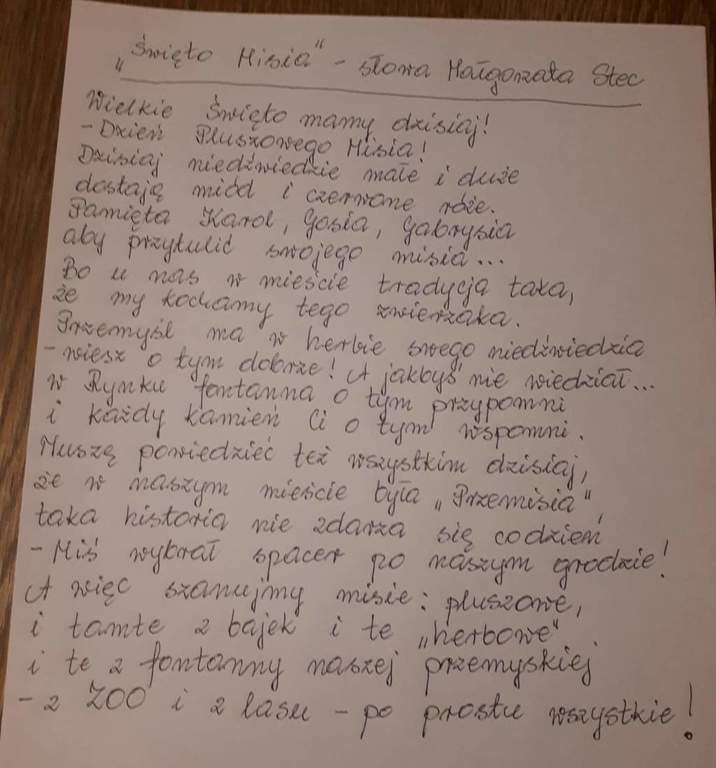 „Święto Misia" - słowa Małgorzata Stec
Wielkie Święto mamy dzisiaj!
- Dzień Pluszowego Misia!
Dzisiaj niedźwiedzie małe i duże
dostają miód i czerwone róże.
Pamięta Karol, Gosia, Gabrysia
aby przytulić swojego misia...
Bo u nas w mieście tradycja taka,
że my kochamy tego zwierzaka.
Przemyśl ma w herbie swego niedźwiedzia
- wiesz o tym dobrze! A jakbyś nie wiedział...
w Rynku fontanna o tym przypomni
i każdy kamień Ci o tym wspomni.
Muszę powiedzieć też wszystkim dzisiaj,
że w naszym mieście była „Przemisia",
taka historia nie zdarza się co dzień
- Miś wybrał spacer po naszym grodzie!
A więc szanujmy misie: pluszowe,
i tamte z bajek i te „herbowe"
i te z fontanny naszej przemyskiej
- z ZOO i z lasu - po prostu wszystkie!